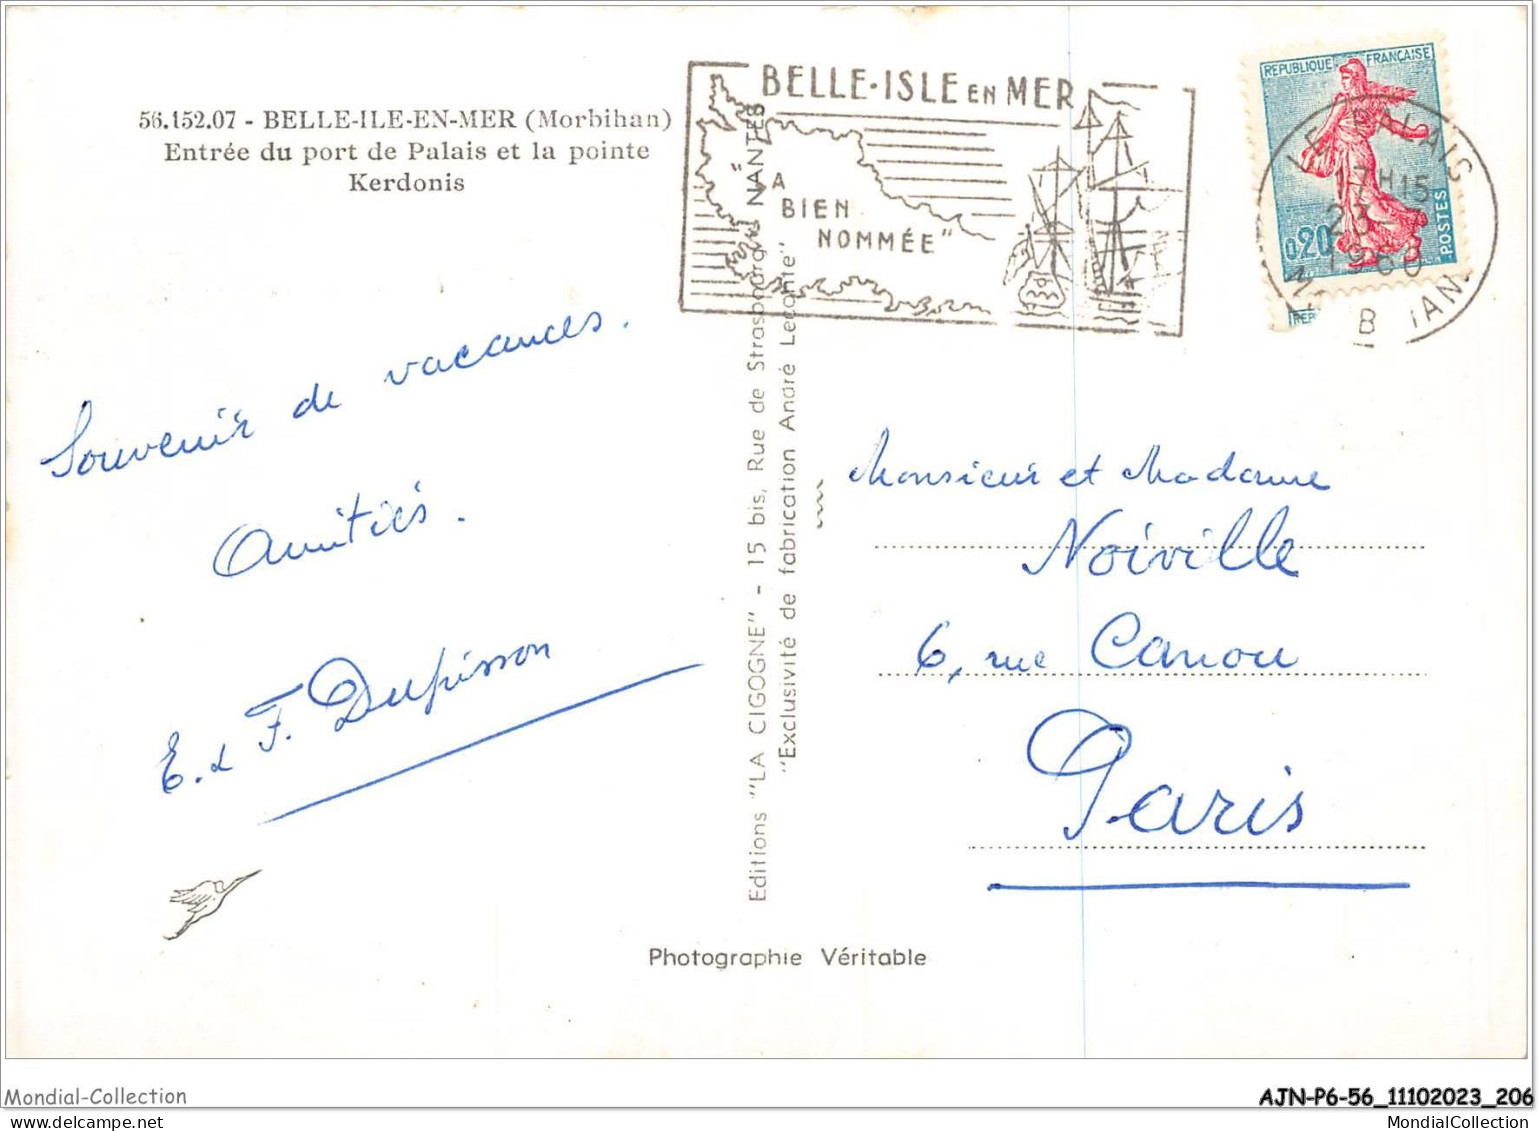 56.152.07 - BELLE-ILE-EN-MER (Morbihan)
Entrée du port de Palais et la pointe
Kerdonis
BELLE-ISLE EN MER
"LA
BIEN
NOMMÉE"
REPUBLIQUE FRANÇAISE
0,20
POSTES
LE PALAIS
17H15
23
1960
Souvenir de vacances.
Amitiés.
E. & F. Dupisson
Editions "LA CIGOGNE" - 15 bis, Rue de Strasbourg - NANTES
"Exclusivité de fabrication André Lecomte"
Monsieur et Madame
Noiville
6, rue Canou
Paris
Photographie Véritable
Mondial-Collection
AJN-P6-56_11102023_206
MondialCollection